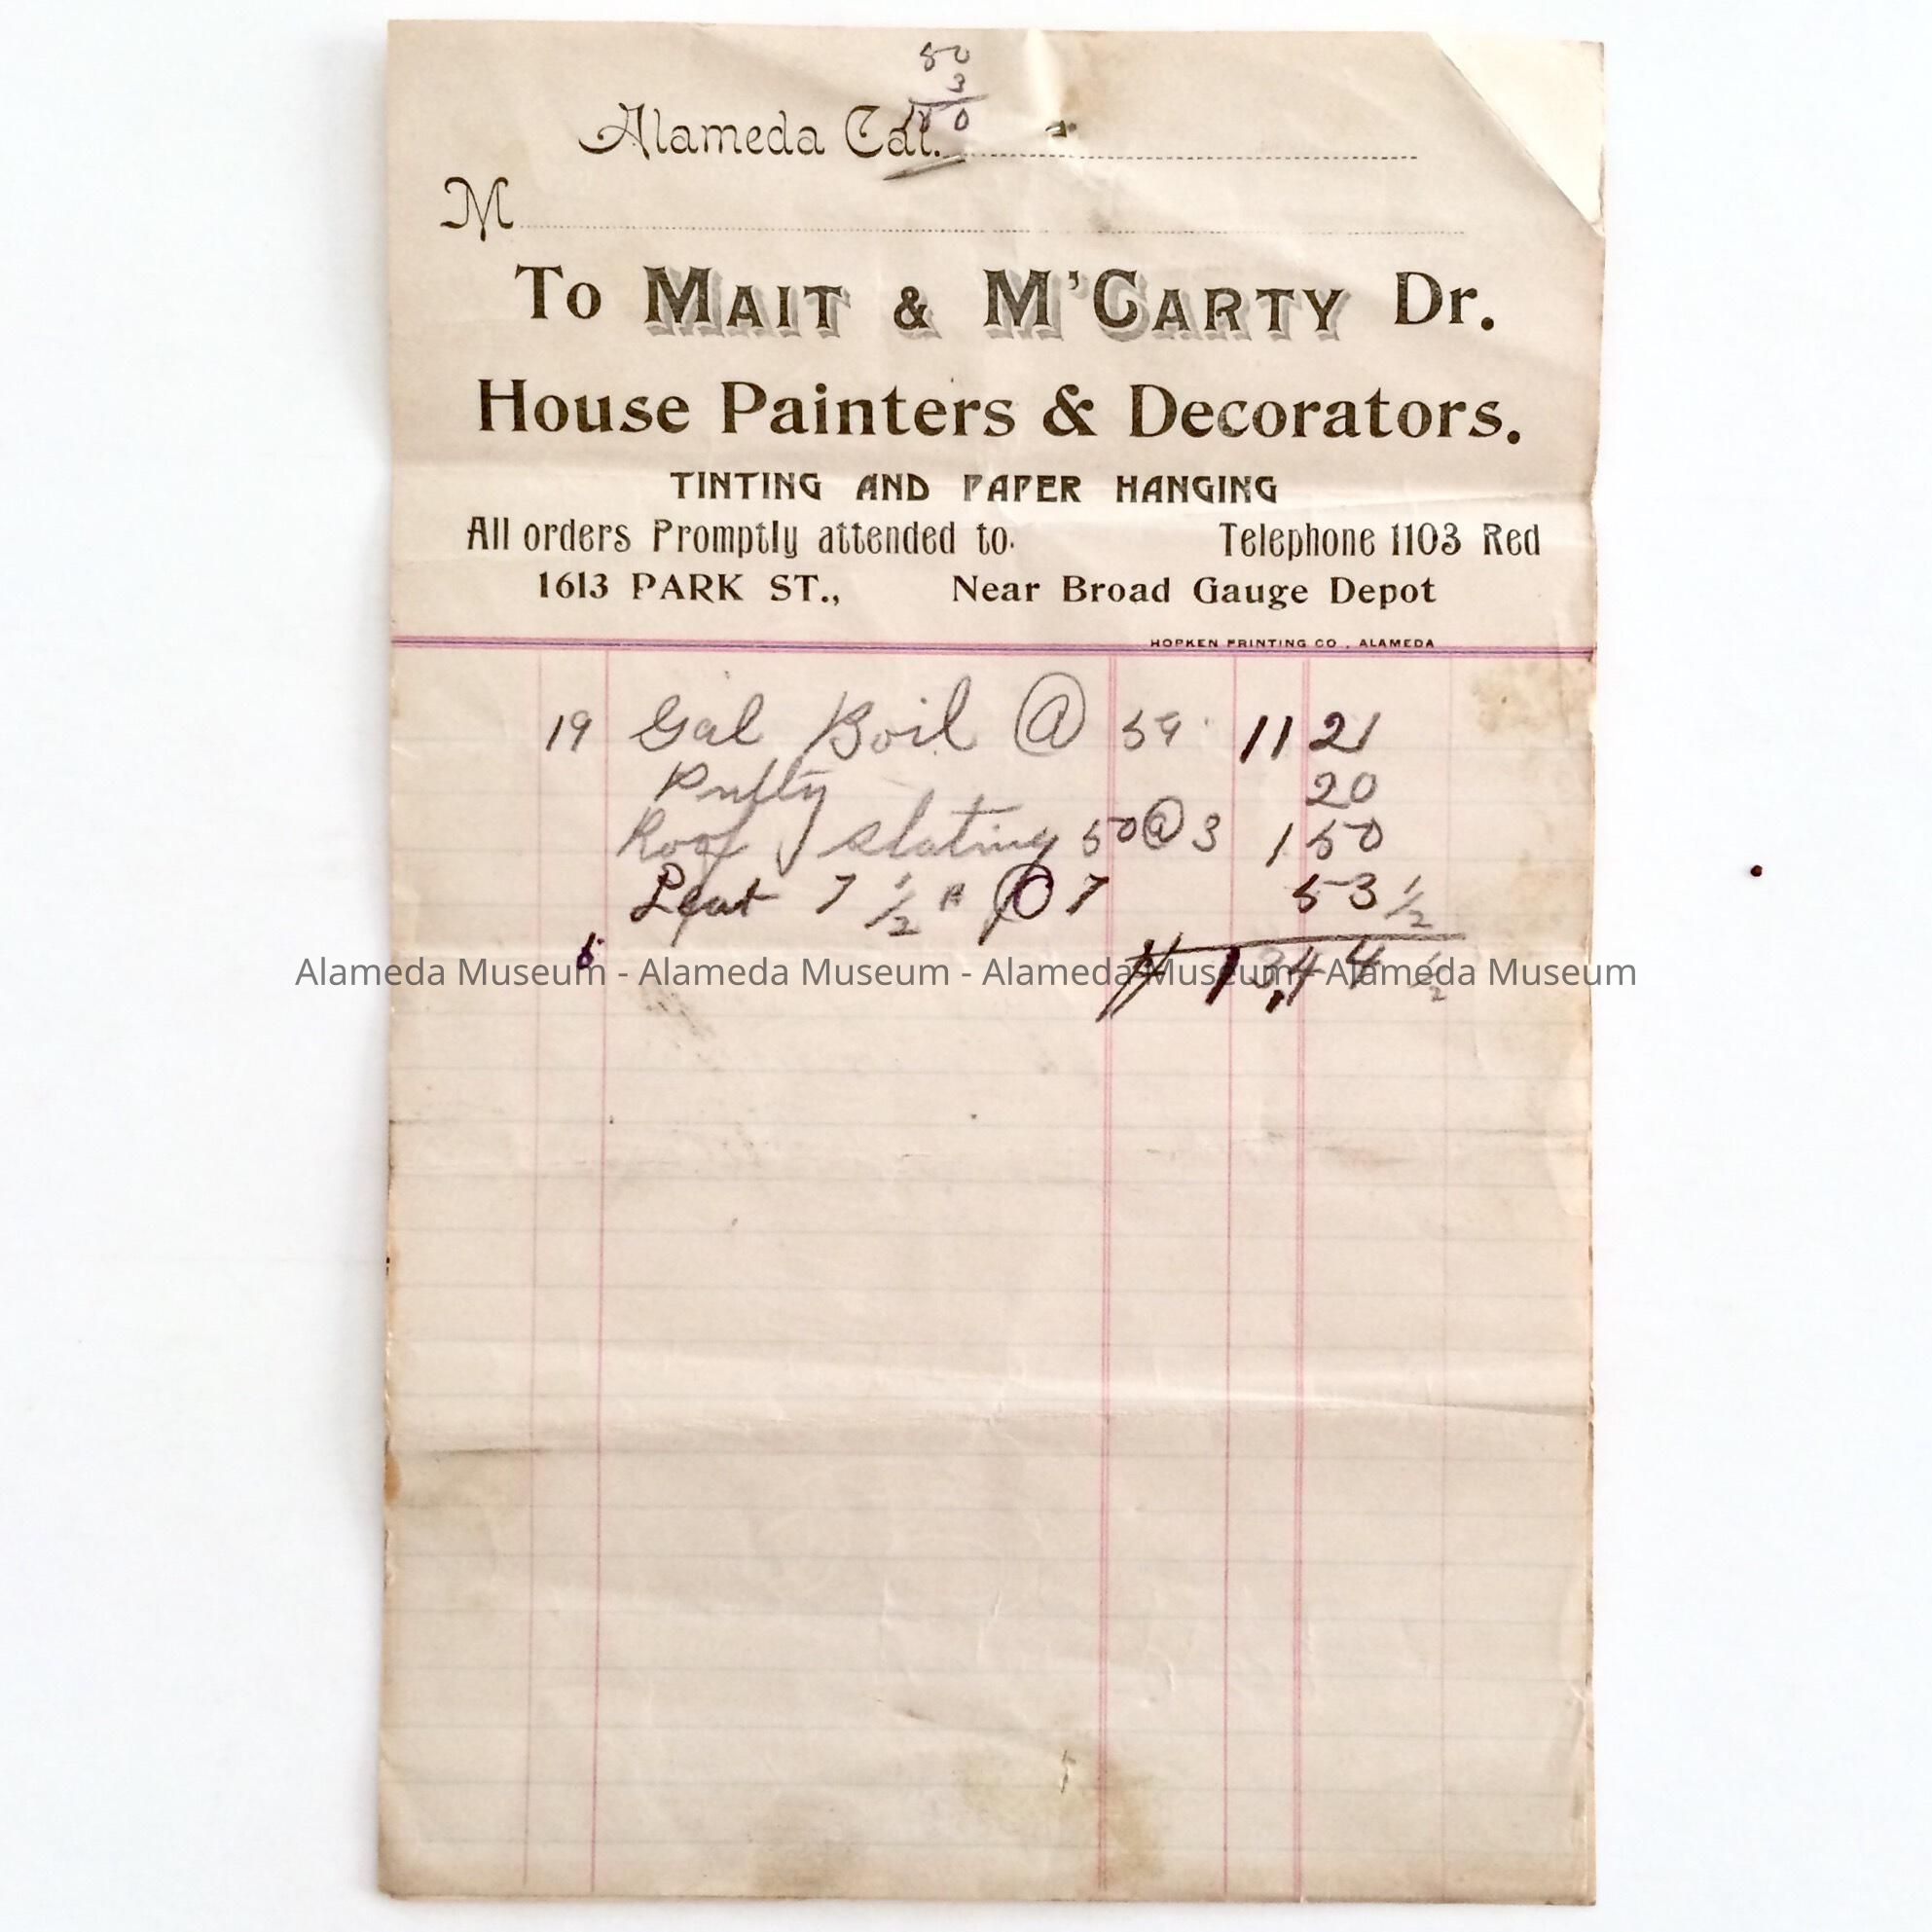 50
3
150
Alameda Cal.
M
To MAIT & M'CARTY Dr.
House Painters & Decorators.
TINTING AND PAPER HANGING
All orders Promptly attended to. Telephone 1103 Red
1613 PARK ST., Near Broad Gauge Depot
HOPKEN PRINTING CO., ALAMEDA
19 Gal Boil @ 59 11 21
Putty 20
Roof slating 50 @ 3 1 50
7 1/2 @ 7 53 1/2
$ 13,44 1/2
Alameda Museum - Alameda Museum - Alameda Museum - Alameda Museum